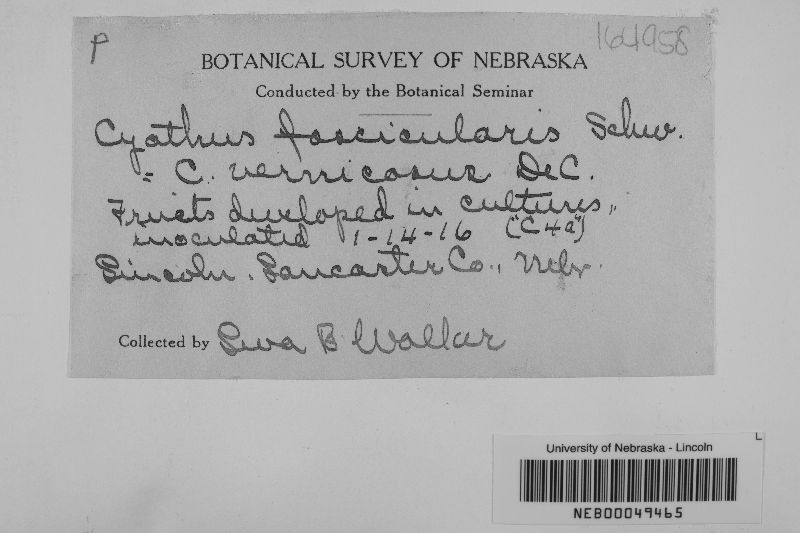 P
164958
BOTANICAL SURVEY OF NEBRASKA
Conducted by the Botanical Seminar
Cyathus fascicularis Schw.
= C. vernicosus DeC.
Fruits developed in cultures,
inoculated 1-14-16 ("C4a")
Lincoln, Lancaster Co., Nebr.
Collected by Leva B. Walker
L
University of Nebraska - Lincoln
NEB00049465